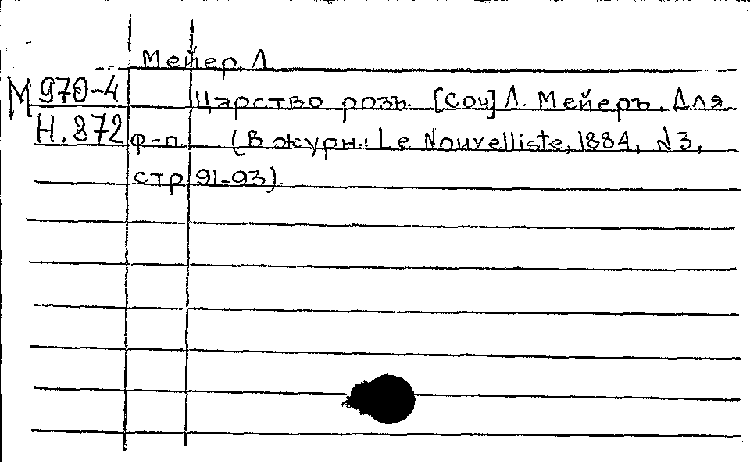 Мейер Л
М 970-4
Царство розъ [Соч] Л. Мейеръ. Для
Н. 872
ф-п. (В журн.: Le Nouvelliste, 1884, №3,
стр 91-93)